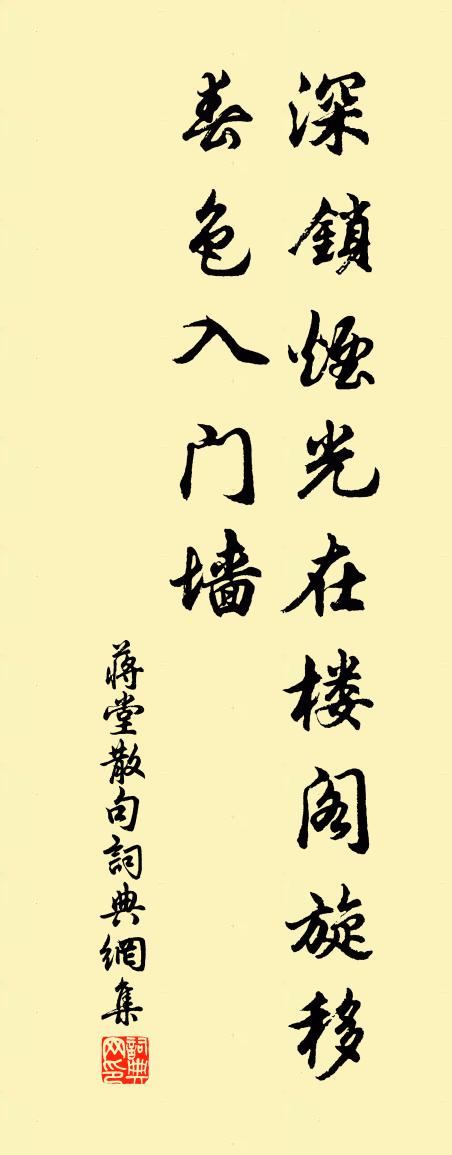 深鎖煙光在楼阁旋移
春色入门墙
蒋堂散句詞典網集
詞典网印